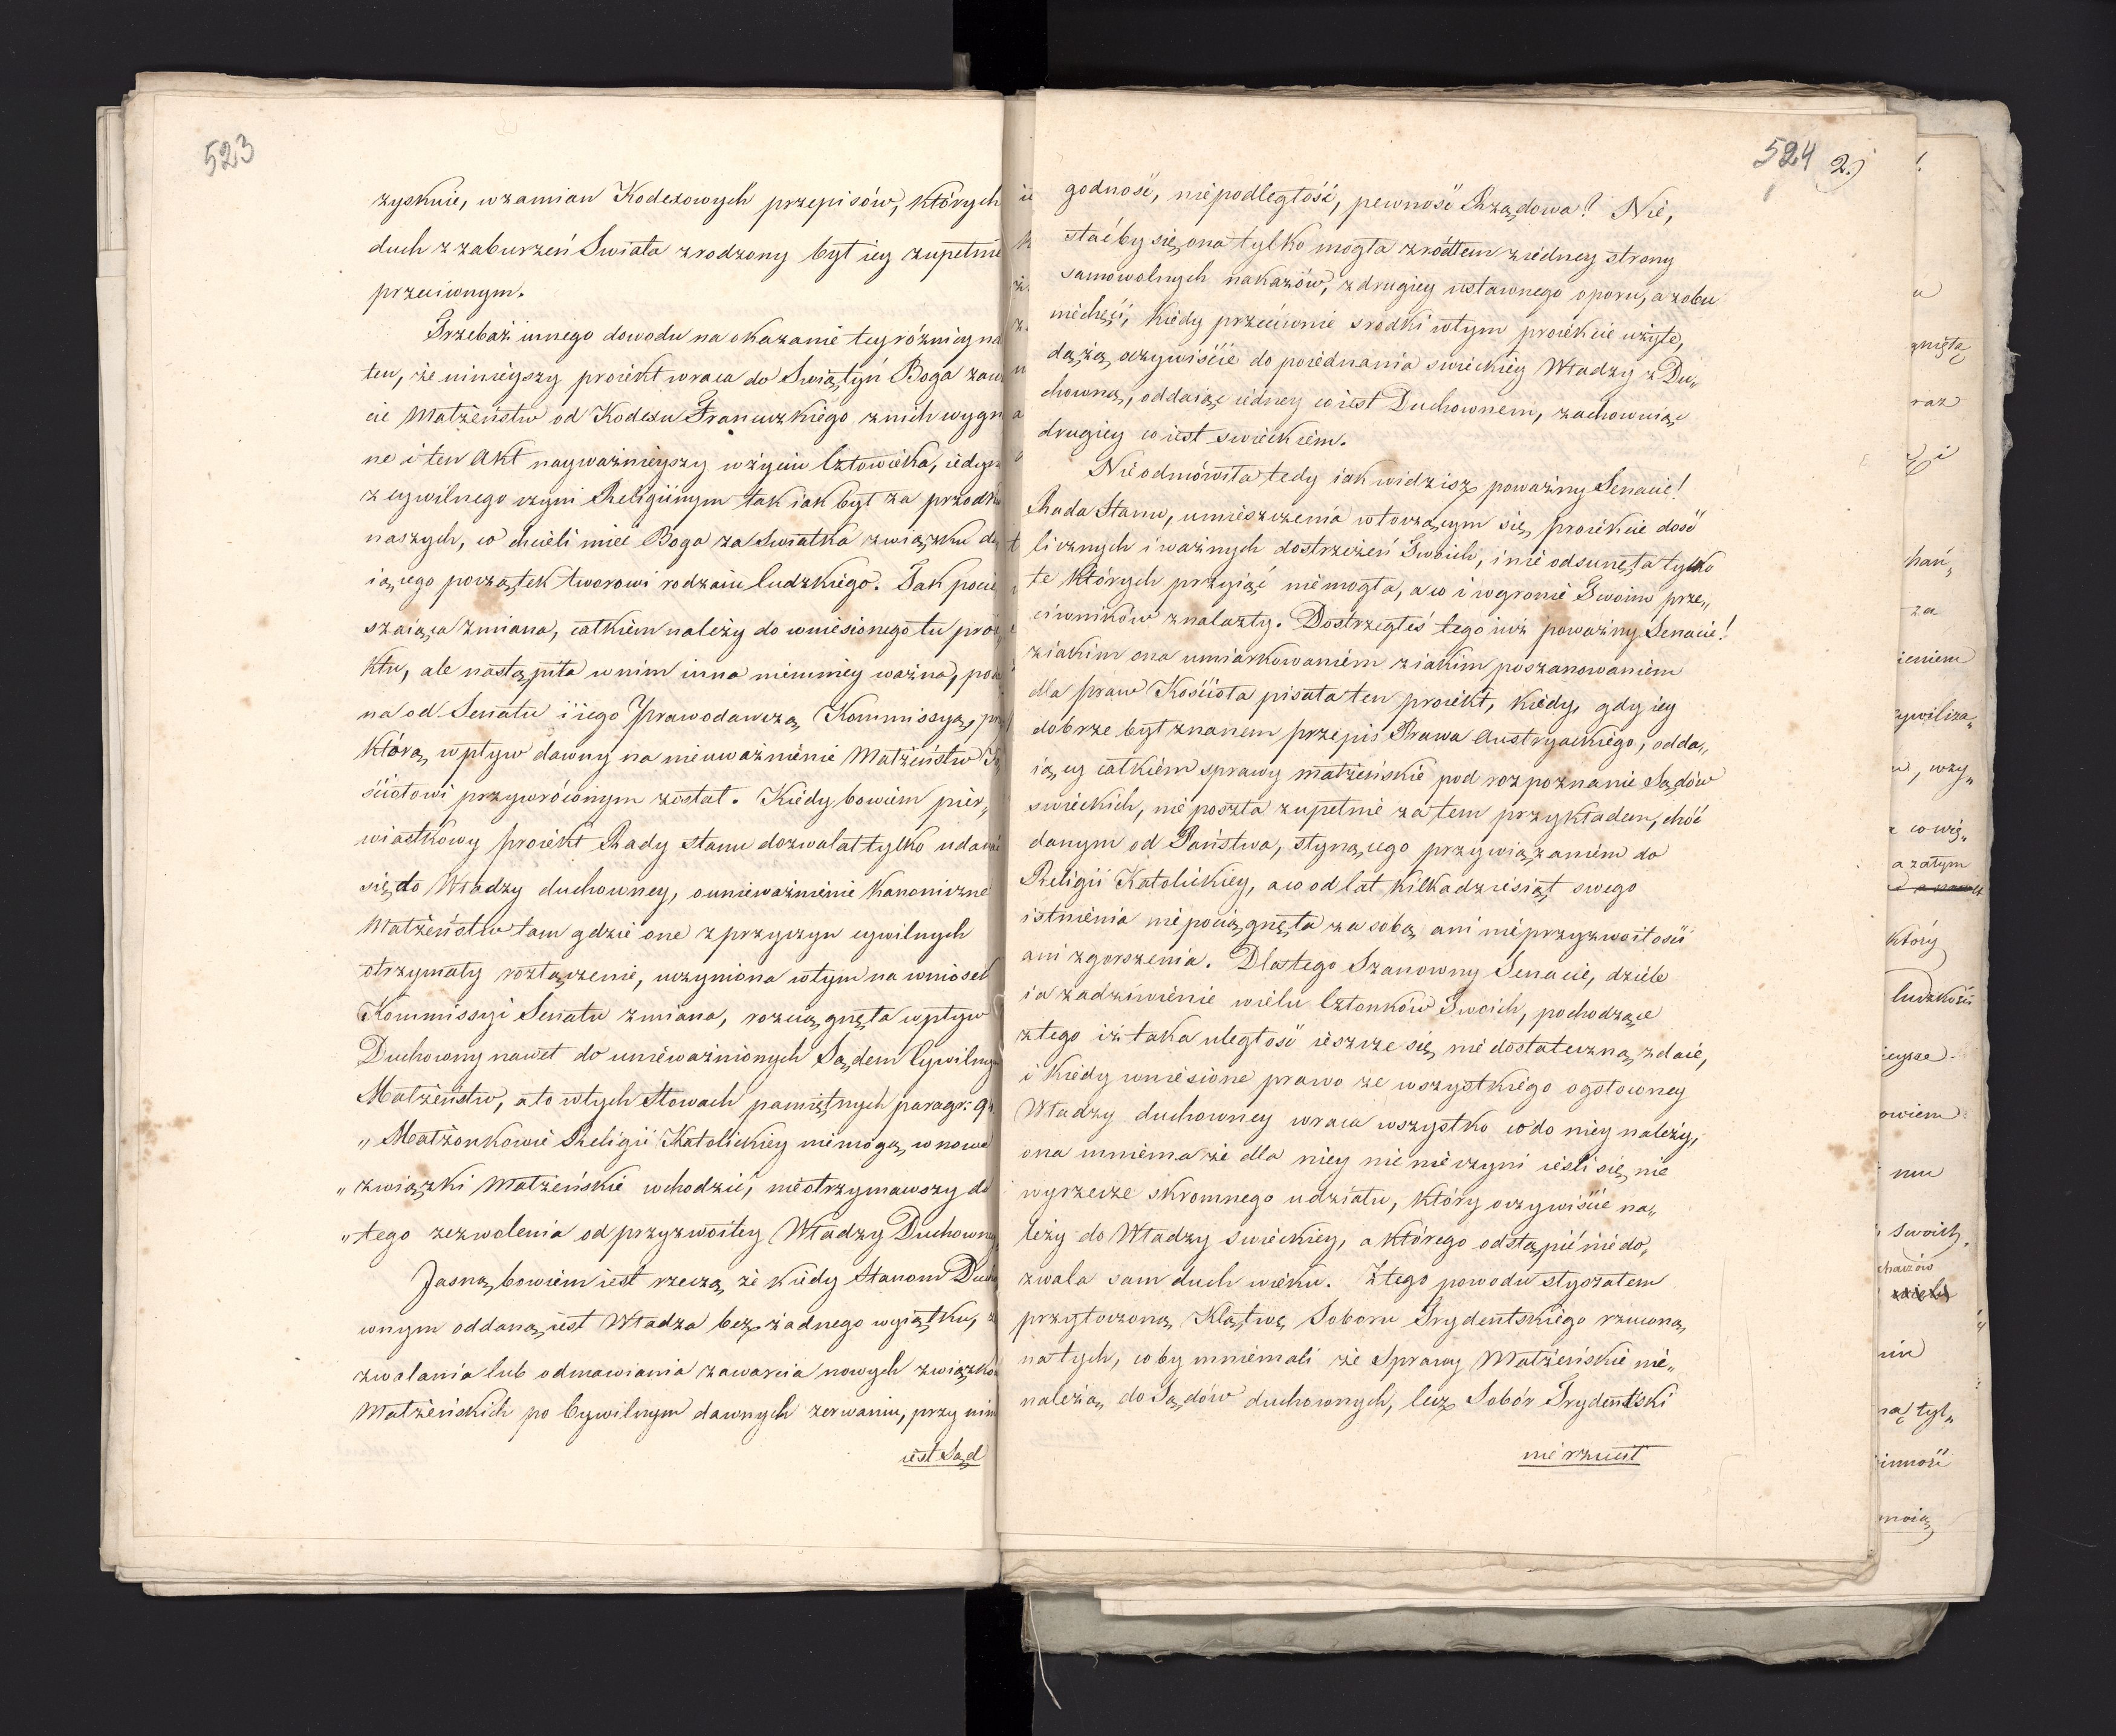 523
zyskuie, wzamian Kodexowych przepisów, których
duch z zaburzeń Swiata zrodzony był iey zupełnie
przeciwnym.
Trzebaż innego dowodu na okazanie tey różnicy na
ten, że ninieyszy proiekt wraca do Swiątyń Boga zaw
cie Małżeństw od Kodexu Francuzkiego z nich wygn
ne i ten Akt nayważnieyszy w życiu Człowieka, iedyn
z cywilnego czyni Religiinym tak iak był za przodk
naszych, co chcieli mieć Boga za Swiatka związku da
iącego początek tworowi rodzaiu ludzkiego. Tak pocie
szaiąca zmiana, całkiem należy do wniesionego tu proie
ktu, ale nastąpiła w nim inna niemniey ważna, poda
na od Senatu i iego Prawodawczą Kommissyą, prz
którą wpływ dawny na nieuważnienie Małżeństw Ko
ściołowi przywróconym został. Kiedy bowiem pier„
wiastkowy proiekt Rady Stanu dozwalał tylko udawać
się do Władzy duchowney, o unieważnienie Kanoniczne
Małżeństw tam gdzie one z przyczyn cywilnych
otrzymały rozłączenie, uczyniona w tym na wniosek
Kommissyi Senatu zmiana, rozciągnęła wpływ
Duchowny nawet do unieważnionych Sądem Cywilny
Małżeństw, a to w tych Słowach pamiętnych paragr: 9
„Małżonkowie Religii Katolickiey nie mogą w nowe
„związki Małżeńskie wchodzić, nie otrzymawszy do
„tego zezwolenia od przyzwoitey Władzy Duchowney
Jasną bowiem iest rzeczą, że kiedy Stanom Ducho
wnym oddaną iest Władza bez żadnego wyiątku, ze
zwalania lub odmawiania zawarcia nowych związków
Małżeńskich po Cywilnym dawnych zerwaniu, przy nim
iest Sąd
524 2.)
godność, niepodległość, pewność Rządowa? Nie,
staćby się ona tylko mogła zródłem z iedney strony
samowolnych nakazów, z drugiey ustawnego oporu, a z obu
niechęci, kiedy przeciwnie srodki w tym proiekcie użyte,
dążą oczywiście do poiednania swieckiey Władzy z Du„
chowną, oddaiąc iedney co iest Duchownem, zachowuiąc
drugiey co iest swieckiem.
Nie odmówiła tedy iak widzisz poważny Senacie!
Rada Stanu, umieszczenia w tworzącym się proiekcie dość
licznych i ważnych dostrzeżeń Twoich, i nie odsunęła tylko
te których przyiąć nie mogła, a co i w gronie Twoim prze„
ciwników znalazły. Dostrzegłeś tego iuż poważny Senacie!
z iakim ona umiarkowaniem z iakim poszanowaniem
dla praw Kościoła pisała ten proiekt, kiedy, gdy iey
dobrze był znanem przepis Prawa Austryackiego, odda„
iący całkiem sprawy małżeńskie pod rozpoznanie Sądów
swieckich, nie poszła zupełnie za tem przykładem, choć
danym od Państwa, słynącego przywiązaniem do
Religii Katolickiey, a co od lat kilkadziesiąt swego
istnienia nie pociągnęła za sobą ani nieprzyzwoitości
ani zgorszenia. Dlatego Szanowny Senacie, dziele
ia zadziwienie wielu Członków Twoich, pochodzące
z tego iż taka uległość ieszcze się nie dostateczną zdaie,
i kiedy wniesione prawo ze wszystkiego ogołowney
Władzy duchowney wraca wszystko co do niey należy,
ona mniema że dla niey nic nie czyni ieśli się nie
wyrzecze skromnego udziału, który oczywiście na„
leży do Władzy swieckiey, a którego odstąpić nie do„
zwala sam duch wieku. Z tego powodu słyszałem
przytoczoną Klątwę Soboru Trydentskiego rzuconą
na tych, coby mniemali że Sprawy Małżeńskie nie„
należą do Sądów duchownych, lecz Sobór Trydentski
nie rzucił
raz
za
który
ludzkości
a zatym
mu
swoich